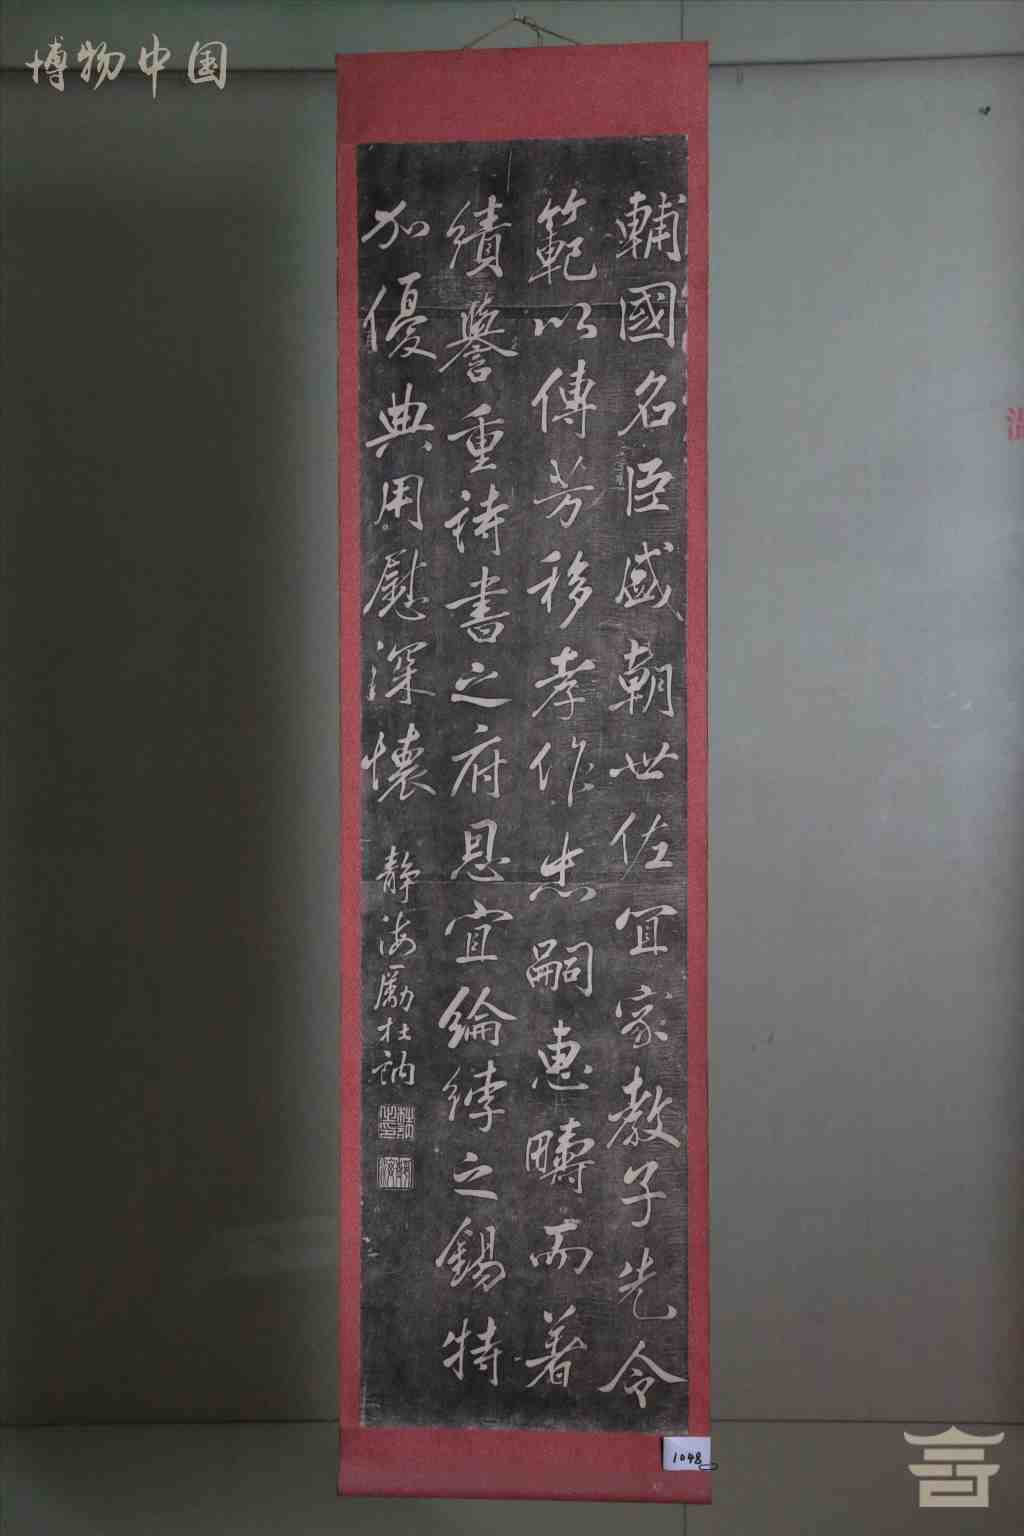 博物中国
輔國名臣盛朝世佐宜家教子先令
範以傳芳移孝作忠嗣惠疇而著
績譽重詩書之府恩宜綸綍之錫特
加優典用慰深懷
靜海勵杜訥
1048